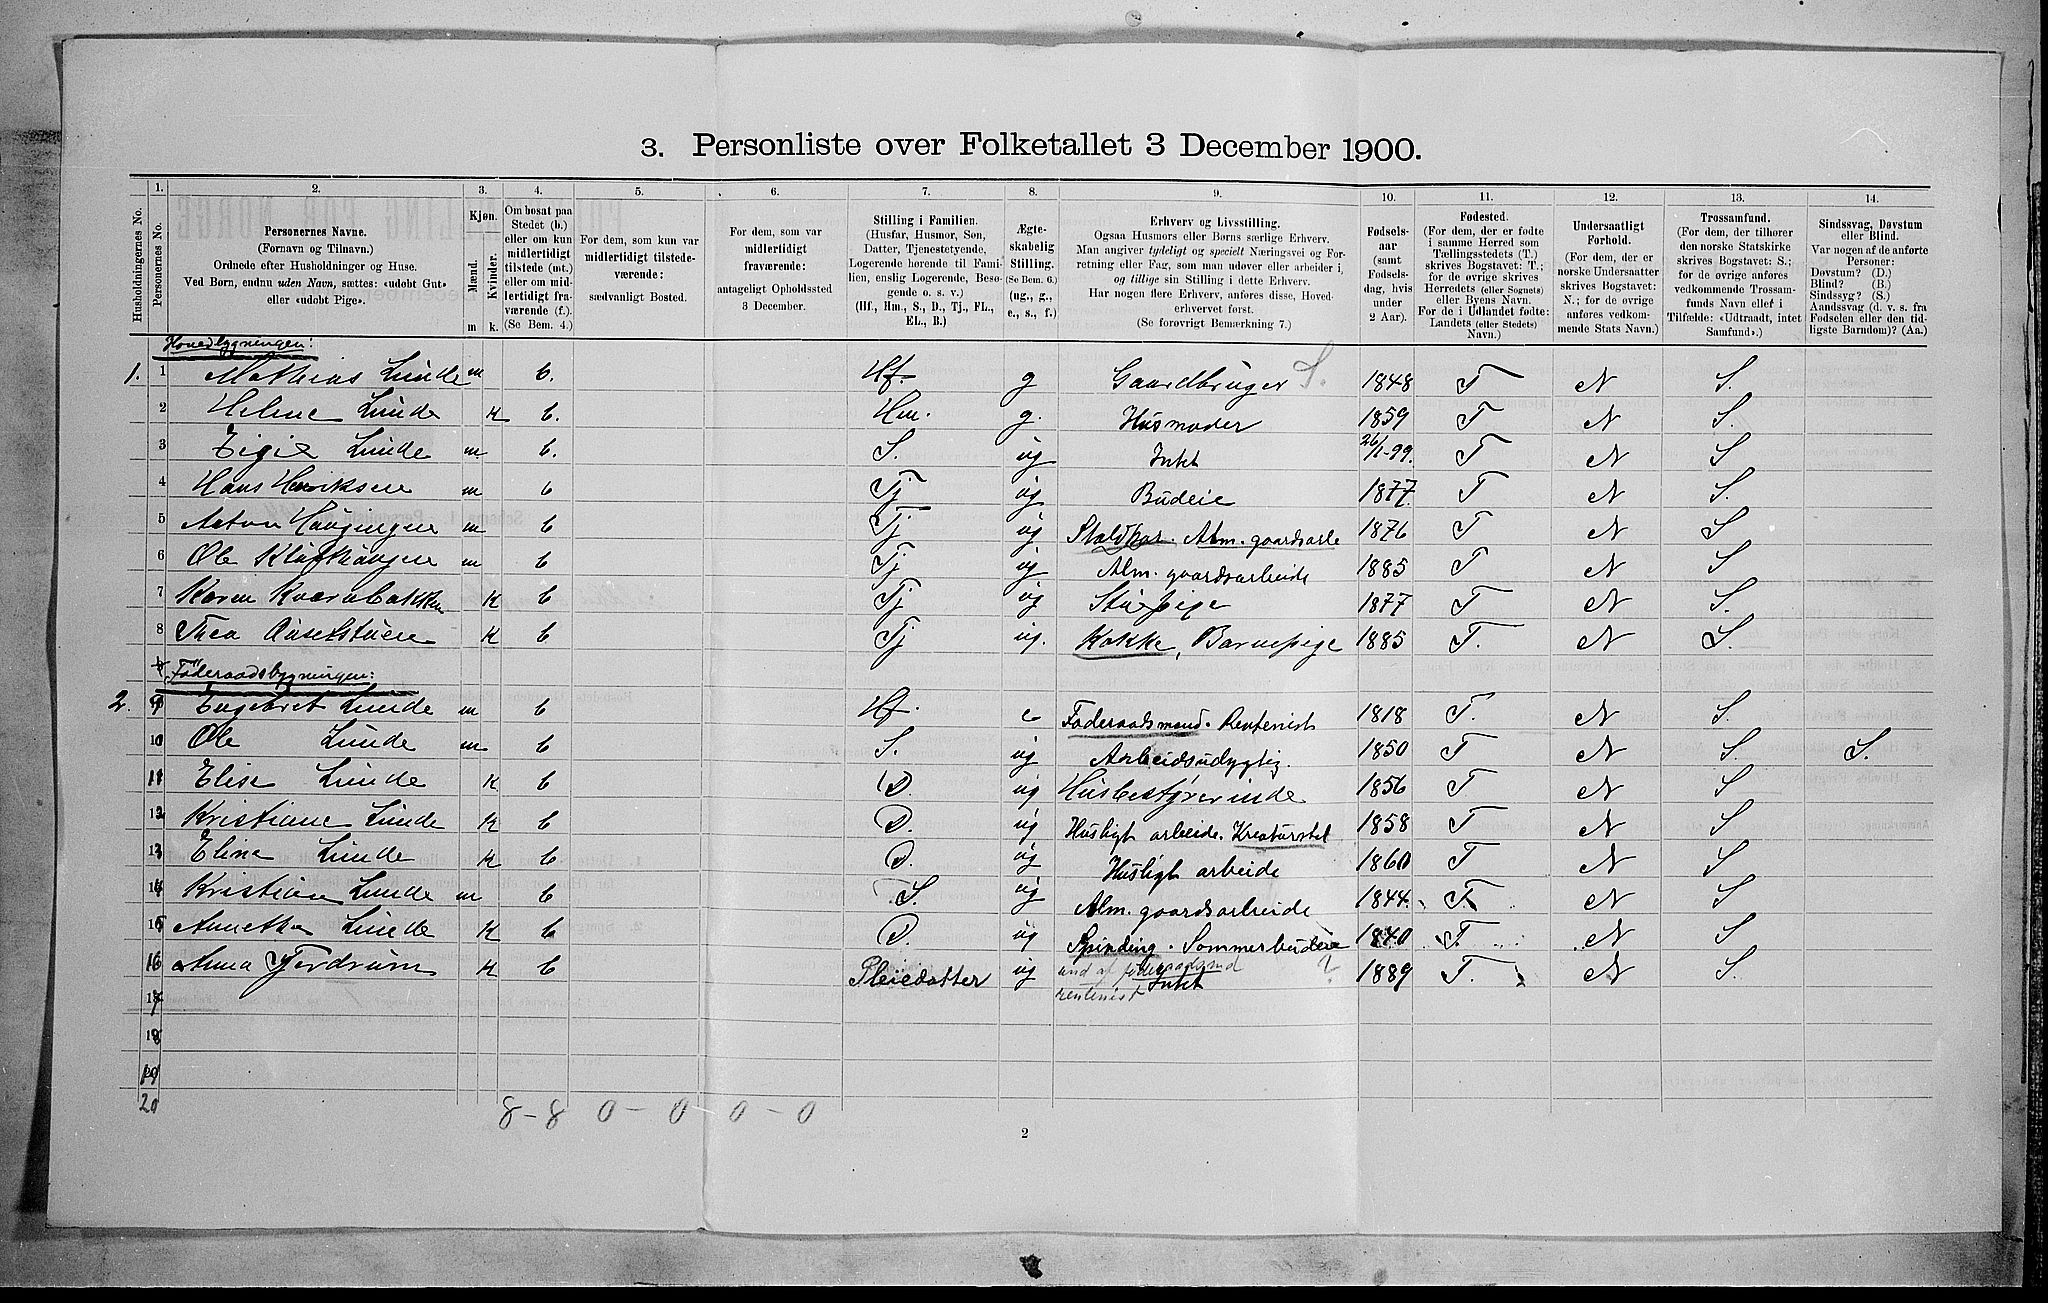 3. Personliste over Folketallet 3 December 1900.
1. 2. 3. 4. 5. 6. 7. 8. 9. 10. 11. 12. 13. 14.
Husholdningernes No.
Personernes No.
Personernes Navne.
(Fornavn og Tilnavn.)
Ordnede efter Husholdninger og Huse.
Ved Børn, endnu uden Navn, sættes: «udøbt Gut»
eller «udøbt Pige».
Kjøn.
Mænd.
Kvinder.
m k.
Om bosat paa
Stedet (b.)
eller om kun
midlertidigt
tilstede (mt.)
eller om mid-
lertidigt fra-
værende (f.).
(Se Bem. 4.)
For dem, som kun var
midlertidigt tilstede-
værende:
sædvanligt Bosted.
For dem, som var
midlertidigt
fraværende:
antageligt Opholdssted
3 December.
Stilling i Familien.
(Husfar, Husmor, Søn,
Datter, Tjenestetyende,
Logerende hørende til Fami-
lien, enslig Logerende, Besø-
gende o. s. v.)
(Hf., Hm., S., D., Tj., FL.,
EL., B.)
Ægte-
skabelig
Stilling.
(Se Bem. 6.)
(ug., g.,
e., s., f.)
Erhverv og Livsstilling.
Ogsaa Husmors eller Børns særlige Erhverv.
Man angiver tydeligt og specielt Næringsvei og For-
retning eller Fag, som man udøver eller arbeider i,
og tillige sin Stilling i dette Erhverv.
Har nogen flere Erhverv, anføres disse, Hoved-
erhvervet først.
(Se forøvrigt Bemærkning 7.)
Fødsels-
aar
(samt
Fødsels-
dag, hvis
under
2 Aar).
Fødested.
(For dem, der er fødte
i samme Herred som
Tællingsstedets (T.)
skrives Bogstavet: T.;
for de øvrige skrives
Herredets (eller Sognets)
eller Byens Navn.
For de i Udlandet fødte:
Landets (eller Stedets)
Navn.)
Undersaatligt
Forhold.
(For dem, der er
norske Undersaatter
skrives Bogstavet:
N.; for de øvrige
anføres vedkom-
mende Stats Navn.)
Trossamfund.
(For dem, der tilhører
den norske Statskirke
skrives Bogstavet: S.;
for de øvrige anføres
vedkommende Trossam-
funds Navn eller i
Tilfælde: «Udtraadt, intet
Samfund».)
Sindssvag, Døvstum
eller Blind.
Var nogen af de anførte
Personer:
Døvstum? (D.)
Blind? (B.)
Sindssyg? (S.)
Aandssvag (d. v. s. fra
Fødselen eller den tid-
ligste Barndom)? (Aa.)
Hovedbygningen:
1. 1 Mathias Lunde m b. Hf. g Gaardbruger S. 1848 T N S.
2 Helene Lunde K b. Hm. g. Husmoder 1859 T N S.
3 Lunde m b. S. ug Intet 26/1-99. T N S
4 Hans Henriksen m b Tj ug Budeie 1877. T N S.
5 Anton Haugingen m b Tj ug Staldkar. Alm. gaardsarb 1876 T N S
6 Ole m b Tj ug Alm. gaardsarbeide 1885 T N S
7 Karen Kvernbakken K b Tj ug Stuepige 1877 T N S.
8 Thea K b Tj ug. Kokke, Barnepige 1885 T. N S.
Föderaadsbygningen:
2. 9 Engebret Lunde m b Hf. e Føderaadsmand. Rentenist 1818 T. N S.
10 Ole Lunde m b S. ug Arbeidsudygtig. 1850 T N S. S.
11 Elise Lunde K b D. ug Husbestyrerinde 1856 T N S
12 Kristiane Lunde K b D. ug Husligt arbeide. Kreaturstel 1858 T N S
13 Elina Lunde K b D. ug Husligt arbeide 1860 T N S
14 Kristian Lunde m b S. ug Alm. gaardsarbeide 1844. T. N S
15 Annetha Lunde K b D. ug Spinding. Sommerbudeie 1840 T. N S
16 Anna Fordrum K b Pleiedatter ug und. af føderaadsmd Intet ? 1889 T. N S.
rentenist
17
18
19
20
8 - 8 0 - 0 0 - 0
2